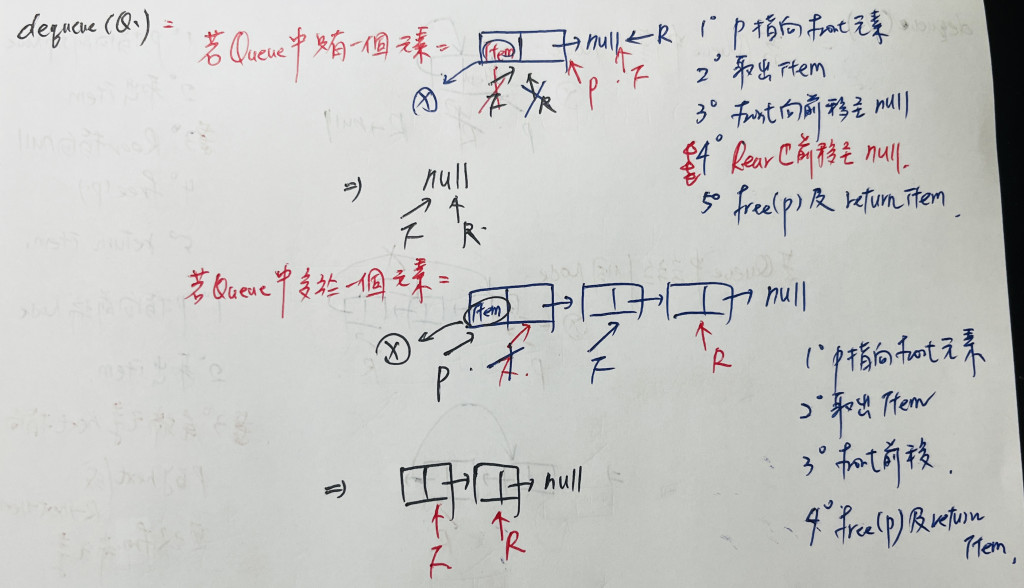 dequeue(Q) =
若Queue中只有一個元素=
Item → null ← R
P F
F R
X
1° P指向front元素
2° 取出Item
3° front向前移至null
4° Rear也前移至null.
5° free(p)及return Item.
⇒ null
F R.
若Queue中多於一個元素=
Item → → → null
X P F F R
1° P指向front元素
2° 取出Item
3° front前移.
4° free(p)及return
Item.
⇒ → → null
F R